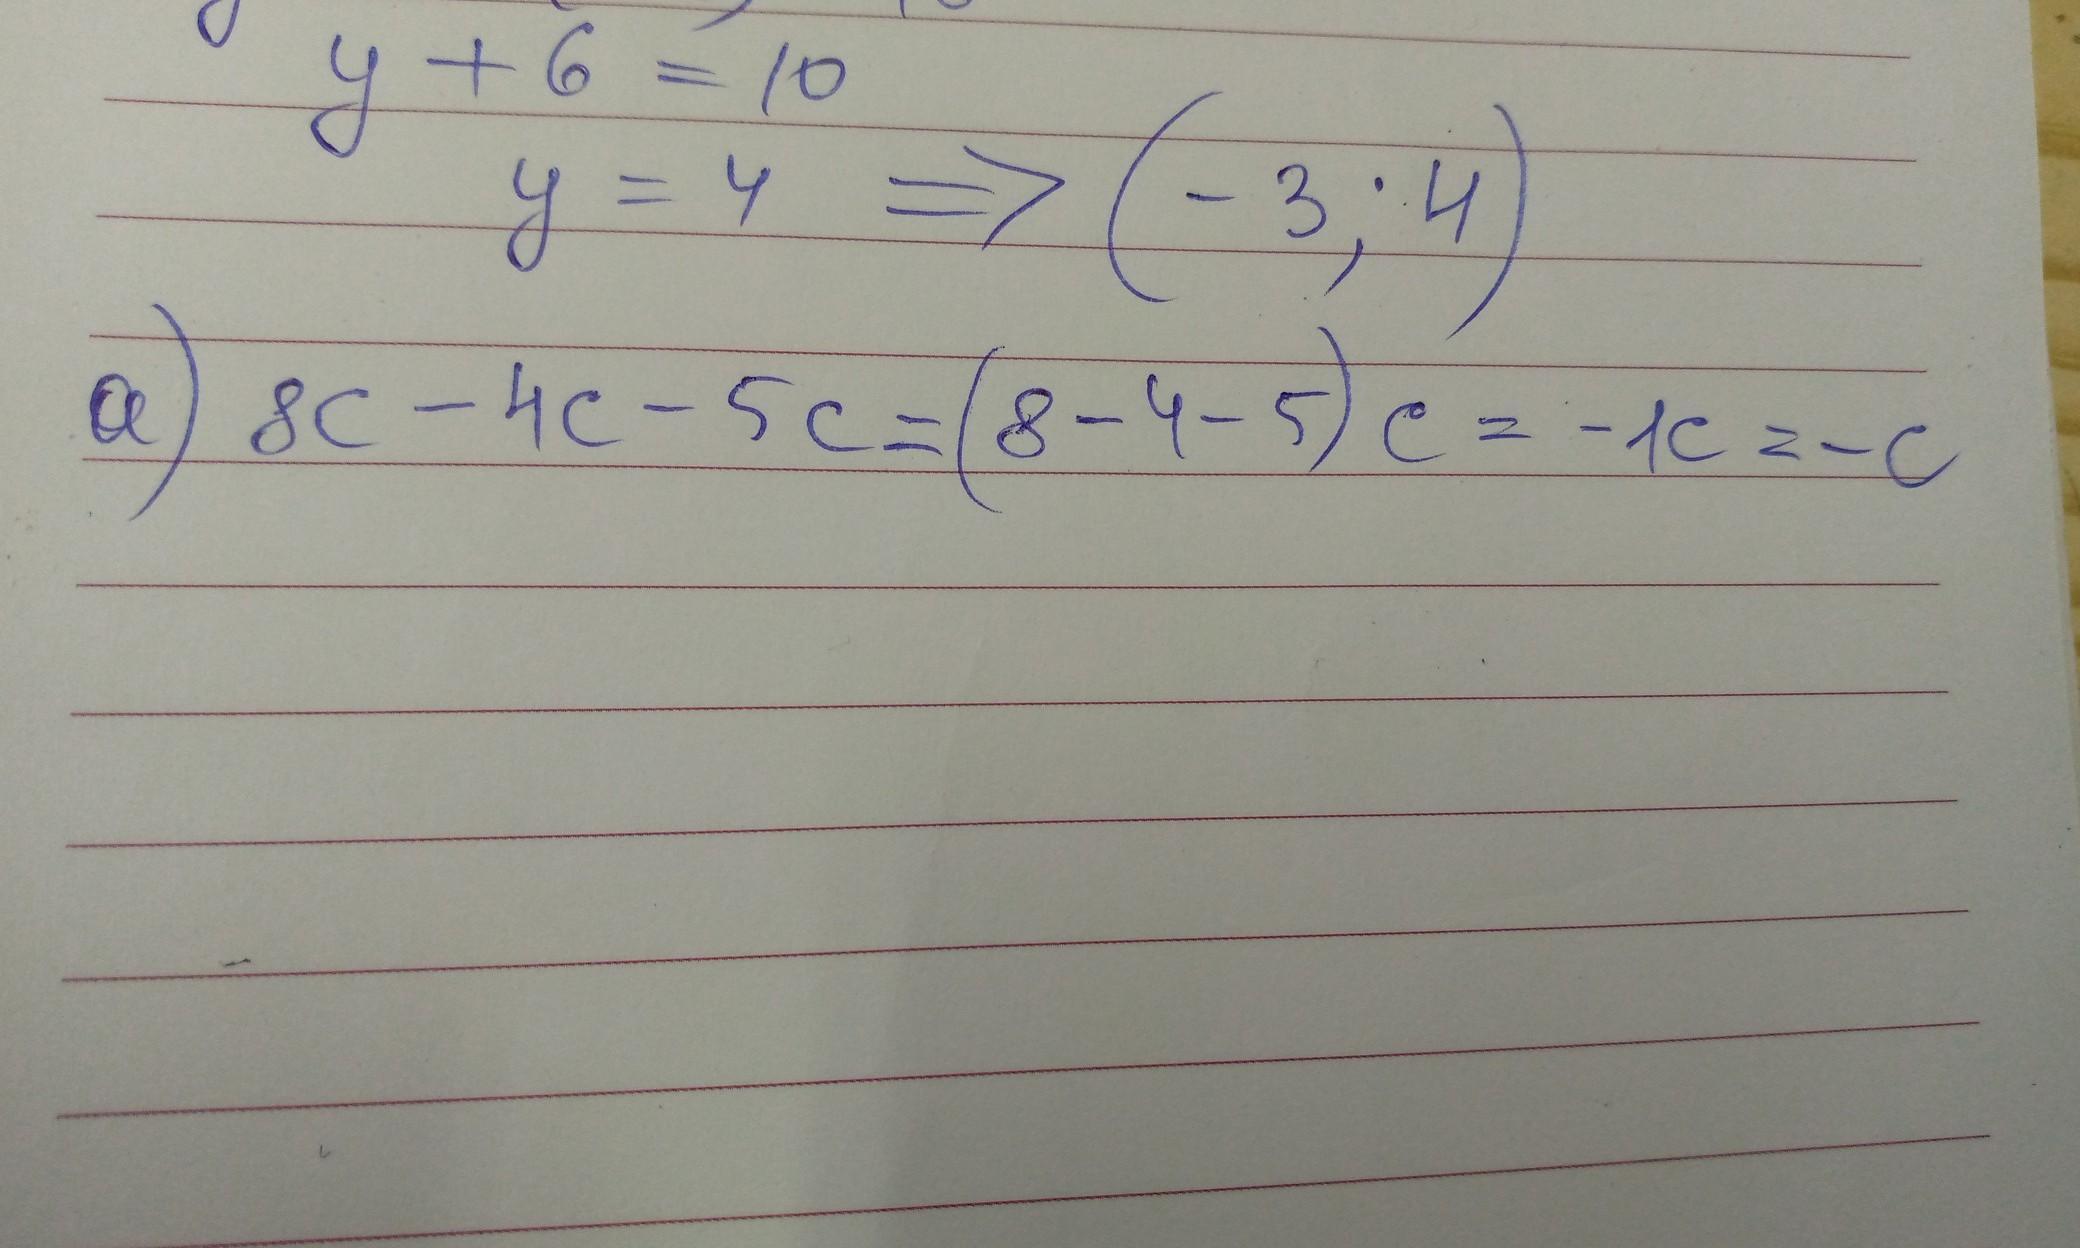 y + 6 = 10
y = 4 => (-3; 4)
a) 8c - 4c - 5c = (8 - 4 - 5) c = -1c = -c